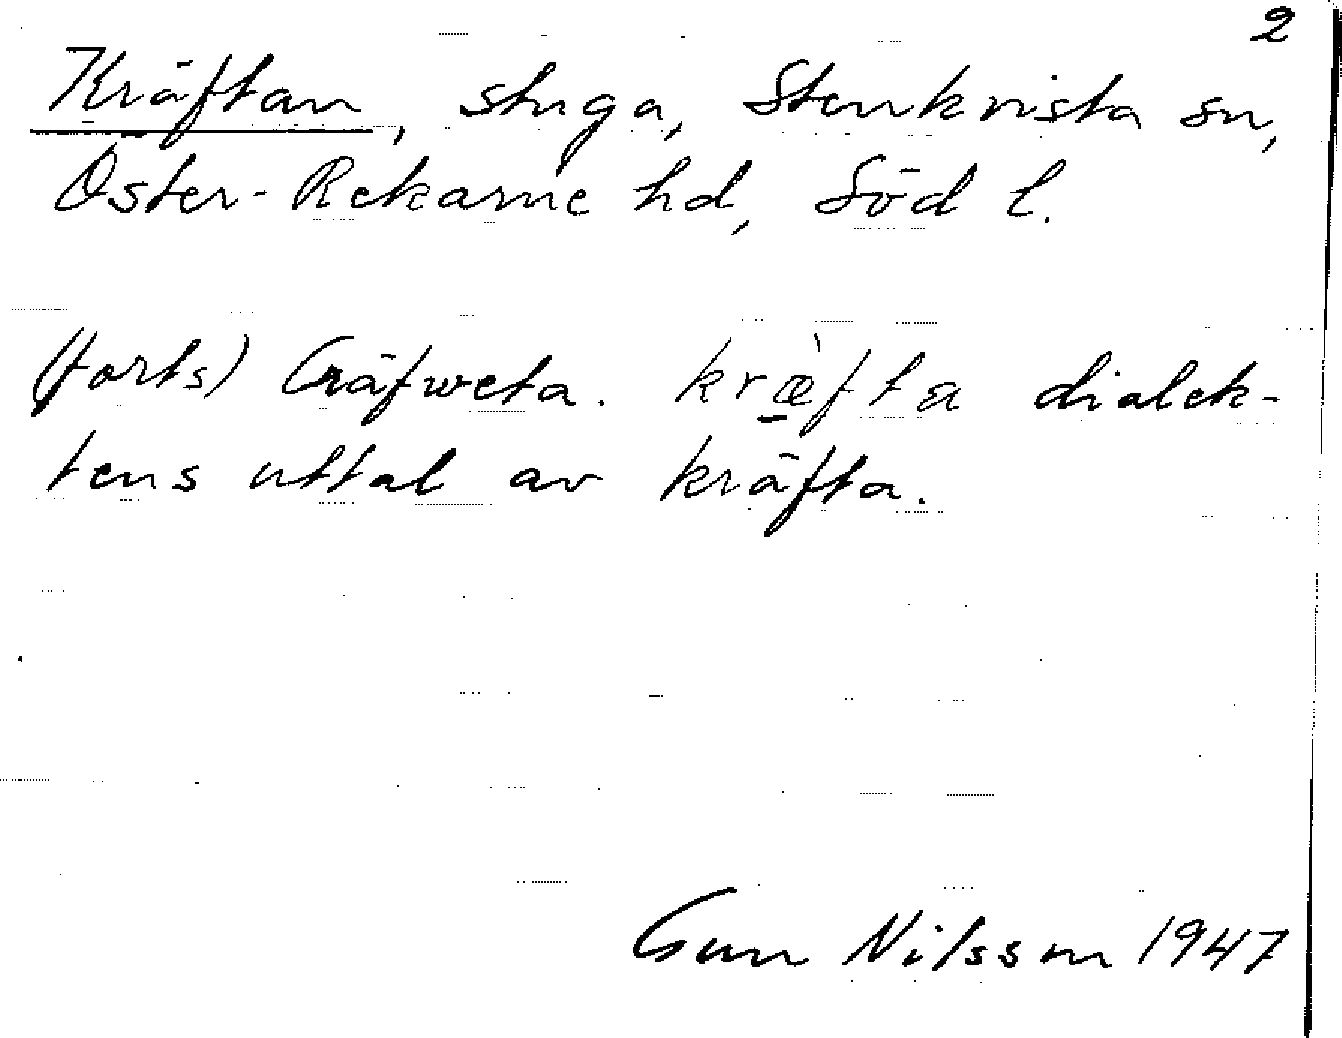 2
Kräftan, stuga, Stenkvista sn,
Öster-Rekarne hd, Söd l.
(forts) Cräfweta. kræ̀fta dialek-
tens uttal av kräfta.
Gun Nilsson 1947